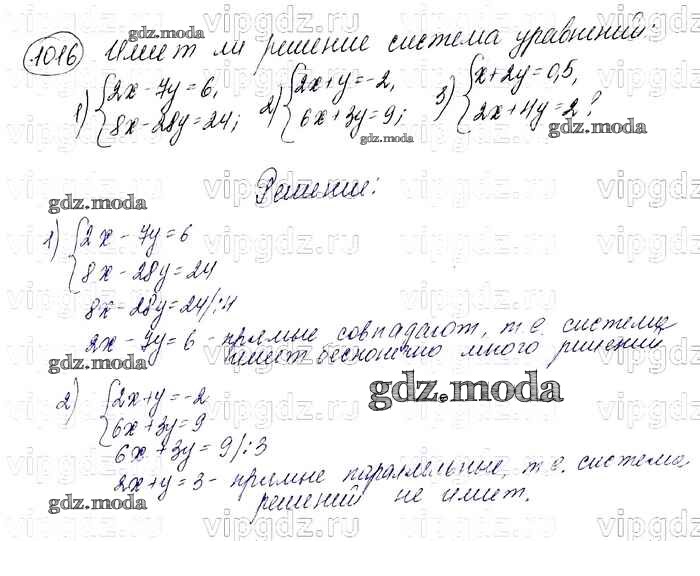 1016 Имеет ли решение система уравнений:
1) {2x - 7y = 6, 2) {2x + y = -2, 3) {x + 2y = 0,5,
8x - 28y = 24; 6x + 3y = 9; 2x + 4y = 2?
Решение:
1) {2x - 7y = 6
8x - 28y = 24
8x - 28y = 24/:4
2x - 7y = 6 - прямые совпадают, т.е. система
имеет бесконечно много решений
2) {2x + y = -2
6x + 3y = 9
6x + 3y = 9/:3
2x + y = 3 - прямые параллельные, т.е. система
решений не имеет.
gdz.moda
vipgdz.ru